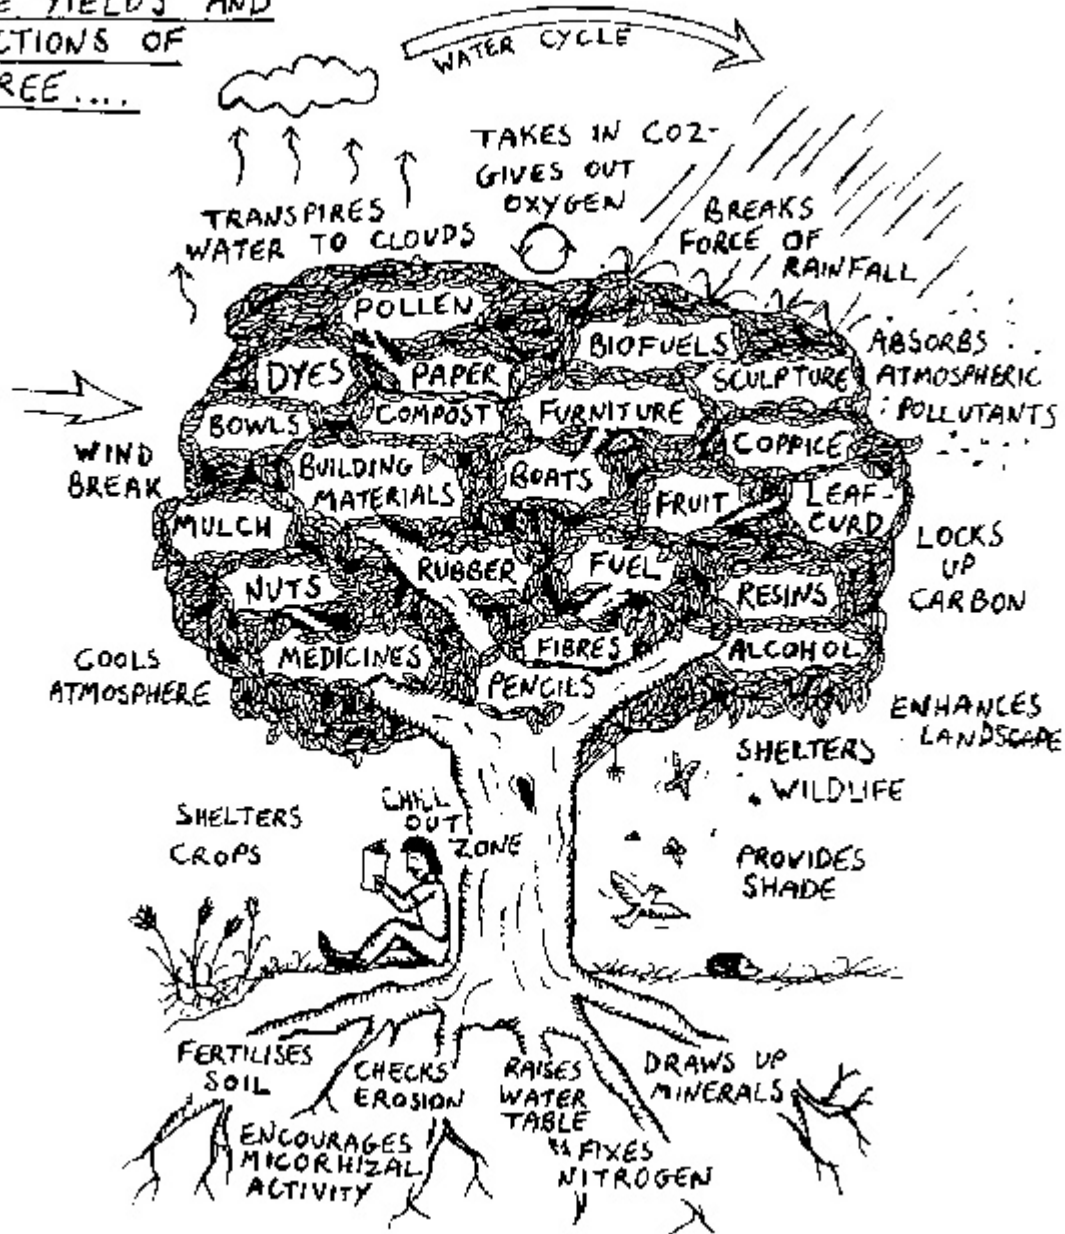 YIELDS AND
OF
WATER CYCLE
TAKES IN CO2-
GIVES OUT
OXYGEN
TRANSPIRES
WATER TO CLOUDS
BREAKS
FORCE OF
RAINFALL
POLLEN
BIOFUELS
ABSORBS
ATMOSPHERIC
POLLUTANTS
DYES
PAPER
SCULPTURE
BOWLS
COMPOST
FURNITURE
COPPICE
WIND
BREAK
BUILDING
MATERIALS
BOATS
FRUIT
LEAF-
CURD
MULCH
LOCKS
UP
CARBON
NUTS
RUBBER
FUEL
RESINS
MEDICINES
FIBRES
ALCOHOL
PENCILS
COOLS
ATMOSPHERE
ENHANCES
LANDSCAPE
SHELTERS
WILDLIFE
SHELTERS
CROPS
CHILL
OUT
ZONE
PROVIDES
SHADE
FERTILISES
SOIL
CHECKS
EROSION
RAISES
WATER
TABLE
DRAWS UP
MINERALS
ENCOURAGES
MICORHIZAL
ACTIVITY
FIXES
NITROGEN